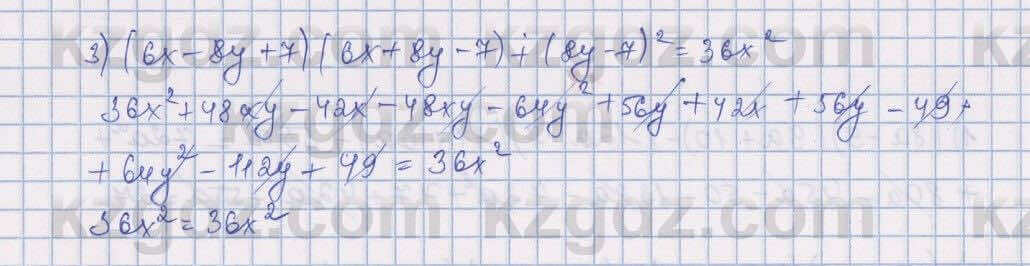 3) (6x - 8y + 7)(6x + 8y - 7) + (8y - 7)² = 36x²
36x² + 48xy - 42x - 48xy - 64y² + 56y + 42x + 56y - 49 +
+ 64y² - 112y + 49 = 36x²
36x² = 36x²
kzgdz.com